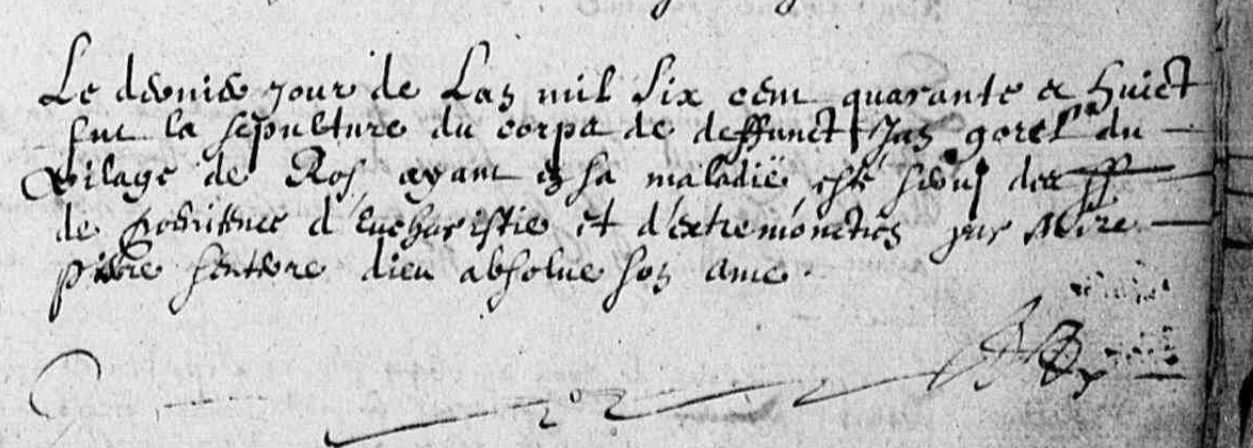 Le dernier jour de Lan mil Six cent quarante et huict
fut la sepulture du corps de deffunct Jan gorel du
vilage de Ros ayant en sa maladie esté des
de penitence d'Eucharistie et d'extremonction par
pierre dieu absolve son ame.